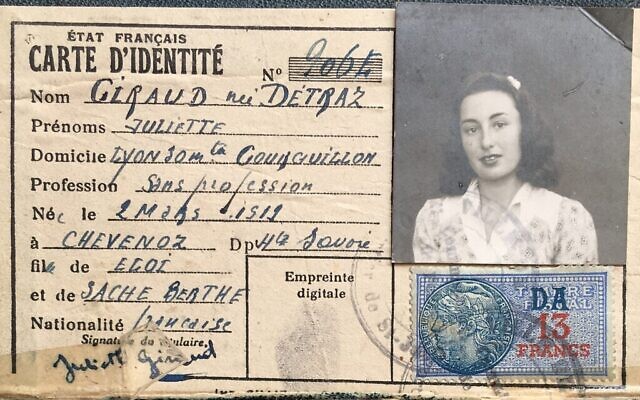 ÉTAT FRANÇAIS
CARTE D'IDENTITÉ
N° 2064
Nom GIRAUD née DÉTRAZ
Prénoms JULIETTE
Domicile LYON 30 mtée Gourguillon
Profession Sans profession
Née le 2 Mars 1912
à CHEVENOZ Dpt Hte Savoie
fille de ELOI
et de SACHE BERTHE
Nationalité française
Signature du titulaire,
Juliette Giraud
Empreinte
digitale
DA
13
FRANCS